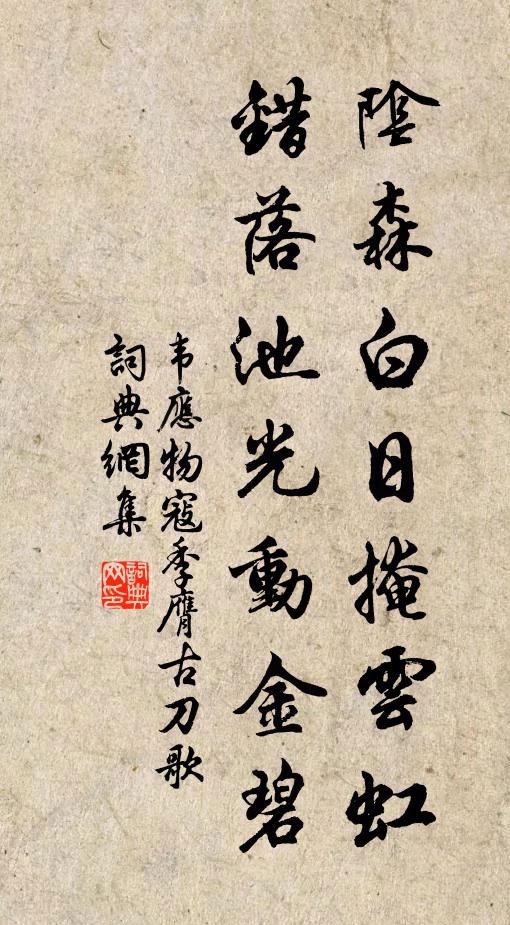 陰森白日掩雲虹
錯落池光動金碧
韦應物寇季膺古刀歌
詞典網集
詞典网印